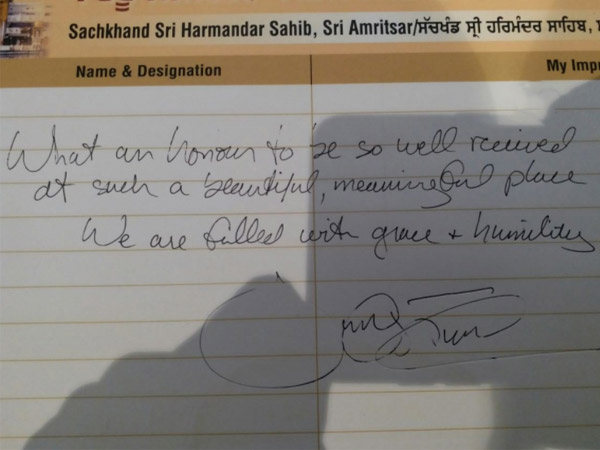 Sachkhand Sri Harmandar Sahib, Sri Amritsar/ਸੱਚਖੰਡ ਸ੍ਰੀ ਹਰਿਮੰਦਰ ਸਾਹਿਬ,
Name & Designation My Imp
What an honour to be so well received
at such a beautiful, meaningful place
We are filled with grace + humility